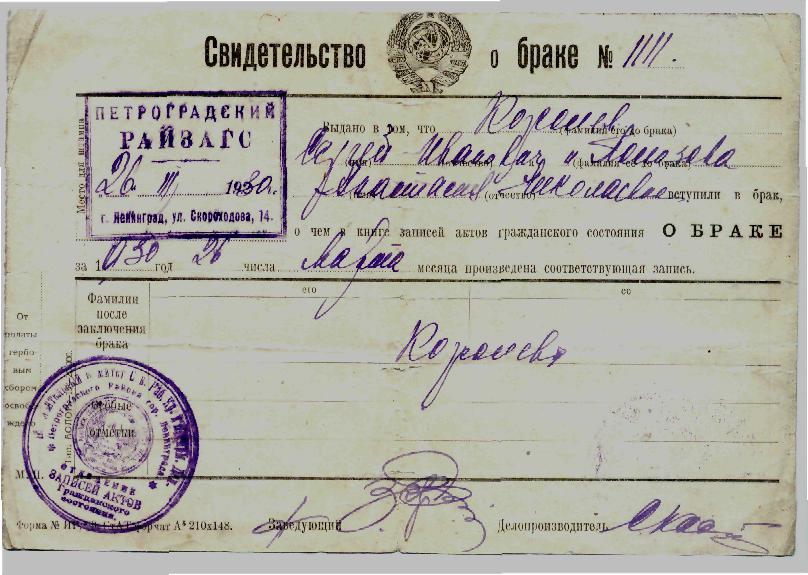 Свидетельство о браке № 1111.
ПЕТРОГРАДСКИЙ
РАЙЗАГС
26 III 1930 г.
г. Ленинград, ул. Скороходова, 14.
Место для штампа
Выдано в том, что Королев
(фамилия его до брака)
Сергей Иванович и
(фамилия ее до брака)
Николаевне вступили в брак,
(отчество)
о чем в книге записей актов гражданского состояния О БРАКЕ
за 1930 год 26 числа Марта месяца произведена соответствующая запись.
его ее
Фамилии
после
заключения
брака
Королевы
От
уплаты
гербо-
вым
сбором
освобо-
ждено
Особые
отметки
Петроградского Района гор. Ленинграда
ОТДЕЛЕНИЕ
ЗАПИСЕЙ АКТОВ
Гражданского
состояния.
М. П.
Заведующий
Делопроизводитель
Форма № формат А⁵ 210х148.